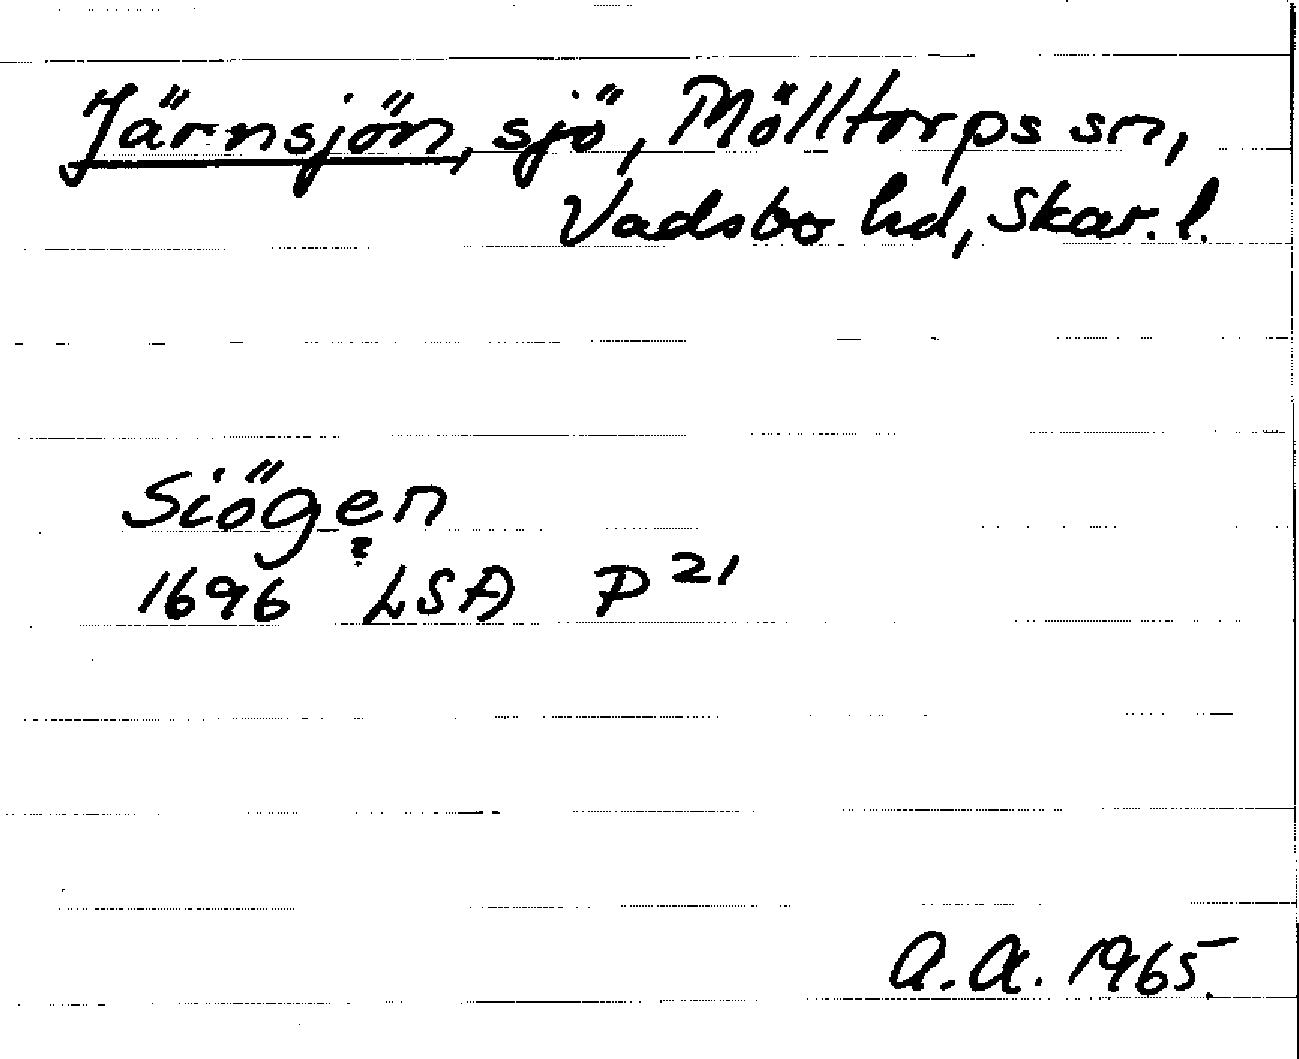 Järnsjön, sjö, Mölltorps sn,
Vadsbo hd, Skar. l.
Siögen
?
1696 LSA P 21
A.A. 1965.